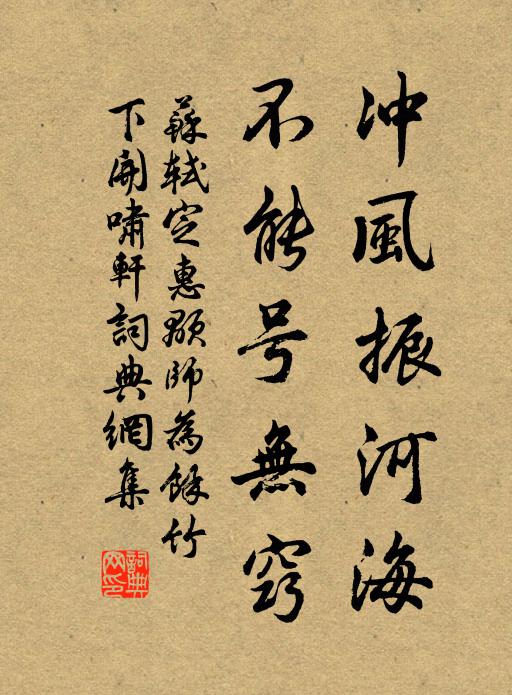 冲風振河海
不能号無竅
蘇軾定惠顒師為餘竹
下開嘯軒詞典網集
詞典
网印